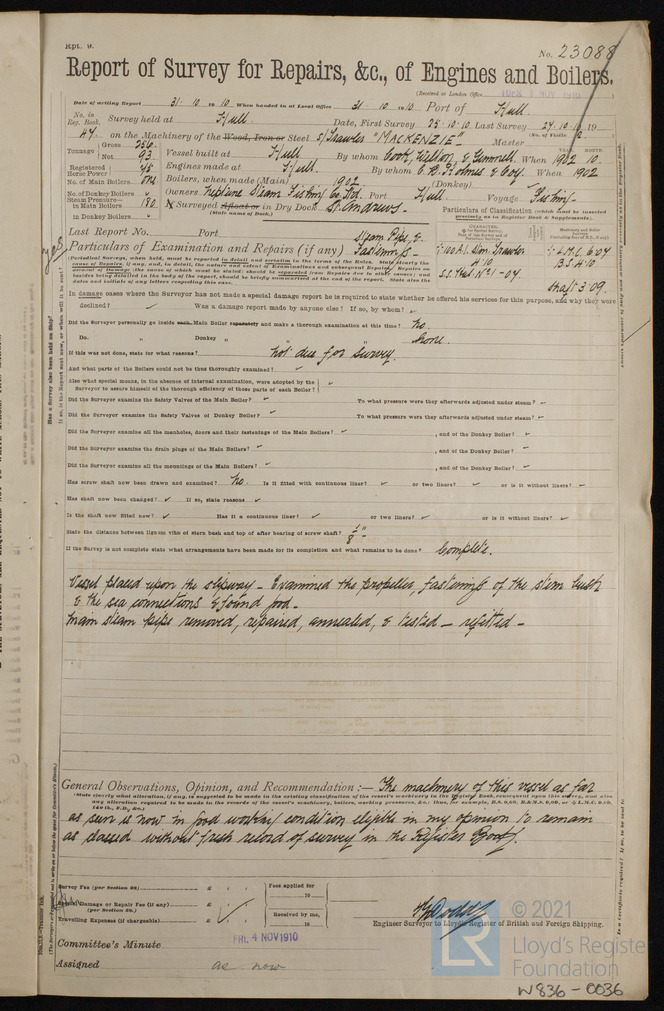 Rpt. 9.
No. 23088
Report of Survey for Repairs, &c., of Engines and Boilers.
(Received at London Office
Date of writing Report 31. 10 1910 When handed in at Local Office 31. 10 1910 Port of Hull.
No. in Reg. Book. Survey held at Hull Date, First Survey 25.10.10 Last Survey 27.10.10 19
47 on the Machinery of the Wood, Iron or Steel S/Trawler "MACKENZIE" Master (No. of Visits 2)
Tonnage Gross 256 Net 93 Vessel built at Hull By whom Cook, Welton, & Gemmell. When 1902 10
Registered Horse Power 75 Engines made at Hull. By whom C. D. Holmes & Coy. When 1902
No. of Main Boilers One Boilers, when made (Main) 1902 (Donkey)
No. of Donkey Boilers Owners Neptune Steam Fishing Co. Ltd. Port Hull. Voyage Fishing
Steam Pressure in Main Boilers 180 Surveyed Afloat or in Dry Dock St. Andrews.
in Donkey Boilers (State name of Dock.)
Particulars of Classification (which must be inserted precisely as in Register Book & Supplements).
Last Report No. Port
Particulars of Examination and Repairs (if any) Steam Pipe & Fastenings
100 A1 Stm Trawler 4.10
S.S. Hul No 1-07
L.M.C. 6.07
B.S. 4.10
Shaft 3.09.
In damage cases where the Surveyor has not made a special damage report he is required to state whether he offered his services for this purpose, and why they were
declined? Was a damage report made by anyone else? If so, by whom?
Did the Surveyor personally go inside each Main Boiler separately and make a thorough examination at this time? No.
Do. " Donkey " " " None.
If this was not done, state for what reasons? Not due for survey.
And what parts of the Boilers could not be thoroughly examined?
Also what special means, in the absence of internal examination, were adopted by the Surveyor to assure himself of the thorough efficiency of those parts of each Boiler?
Did the Surveyor examine the Safety Valves of the Main Boiler? To what pressure were they afterwards adjusted under steam?
Did the Surveyor examine the Safety Valves of Donkey Boiler? To what pressure were they afterwards adjusted under steam?
Did the Surveyor examine all the manholes, doors and their fastenings of the Main Boilers? , and of the Donkey Boiler?
Did the Surveyor examine the drain plugs of the Main Boilers? , and of the Donkey Boiler?
Did the Surveyor examine all the mountings of the Main Boilers? , and of the Donkey Boiler?
Has screw shaft now been drawn and examined? No. Is it fitted with continuous liner? or two liners? or is it without liners?
Has shaft now been changed? If so, state reasons
Is the shaft now fitted new? Has it a continuous liner? or two liners? or is it without liners?
State the distance between lignum vitæ of stern bush and top of after bearing of screw shaft? 1/8"
If the Survey is not complete state what arrangements have been made for its completion and what remains to be done? Complete.
Vessel placed upon the slipway - Examined the propeller, fastenings of the stern bush
& the sea connections & found good.
Main steam pipe removed, repaired, annealed, & tested - refitted -
General Observations, Opinion, and Recommendation:— The machinery of this vessel as far
as seen is now in good working condition eligible in my opinion to remain
as classed without fresh record of survey in the Register Book.
Survey Fee (per Section 28) £
Special Damage or Repair Fee (if any) £
(per Section 28.)
Travelling Expenses (if chargeable) £
Fees applied for
19
Received by me,
19
Engineer Surveyor to Lloyd's Register of British and Foreign Shipping.
Committee's Minute FRI. 4 NOV 1910
Assigned as now
© 2021
Lloyd's Register
Foundation
W836-0036